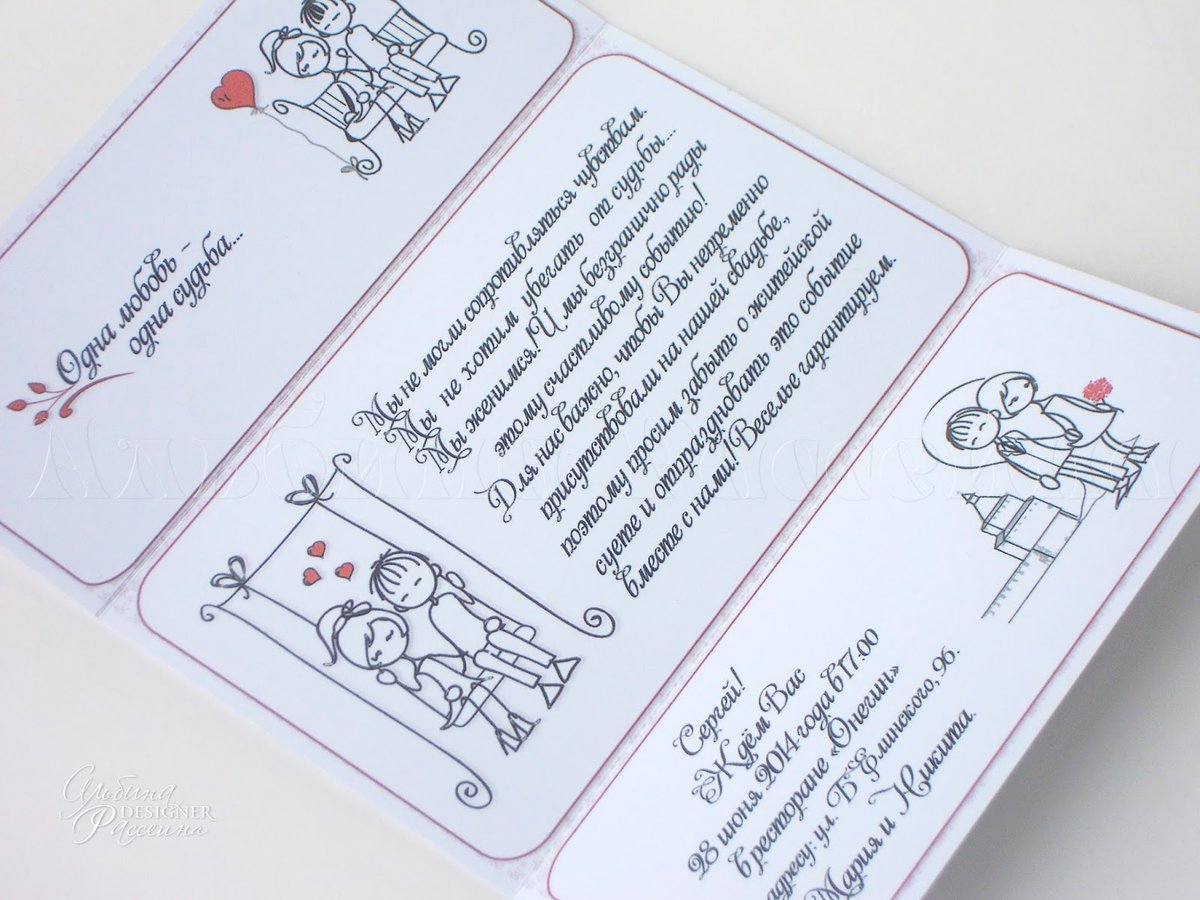 Одна любовь -
одна судьба...
Мы не могли сопротивляться чувствам.
Мы не хотим убегать от судьбы...
Мы женимся! И мы безгранично рады
этому счастливому событию!
Для нас важно, чтобы Вы непременно
присутствовали на нашей свадьбе,
поэтому просим забыть о житейской
суете и отпраздновать это событие
вместе с нами! Веселье гарантируем.
Сергей!
Ждём Вас
28 июня 2014 года в 17:00
в ресторане «Онегин»
адресу: ул. Б. Елминского, 96.
Мария и Никита.
Альбина
DESIGNER
Рассеина